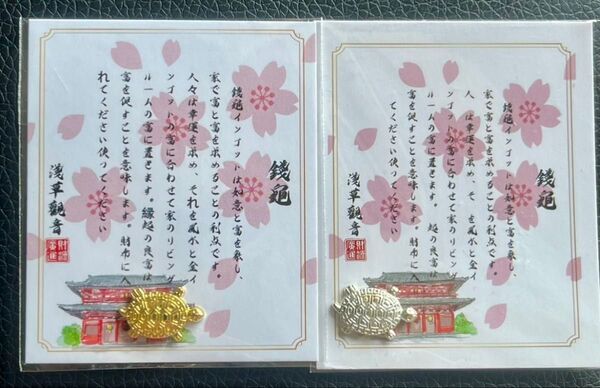 銭亀
銭亀インゴットは如意と富を象し、
家で富と富を求めることの利点です。
人々は幸運を求め、それを風水と金イ
ンゴットの富に合わせて家のリビング
ルームの富に置きます。縁起の良富は
富を促すことを意味します。財布に入
れてください使ってください
浅草観音
銭亀
銭亀インゴットは如意と富を象し、
家で富と富を求めることの利点です。
人は幸運を求め、そ を風水と金イ
ンゴットの富に合わせて家のリビング
ルームの富に置きます。 起の良富は
富を促すことを意味します。財布に入
れてください使ってください
浅草観音